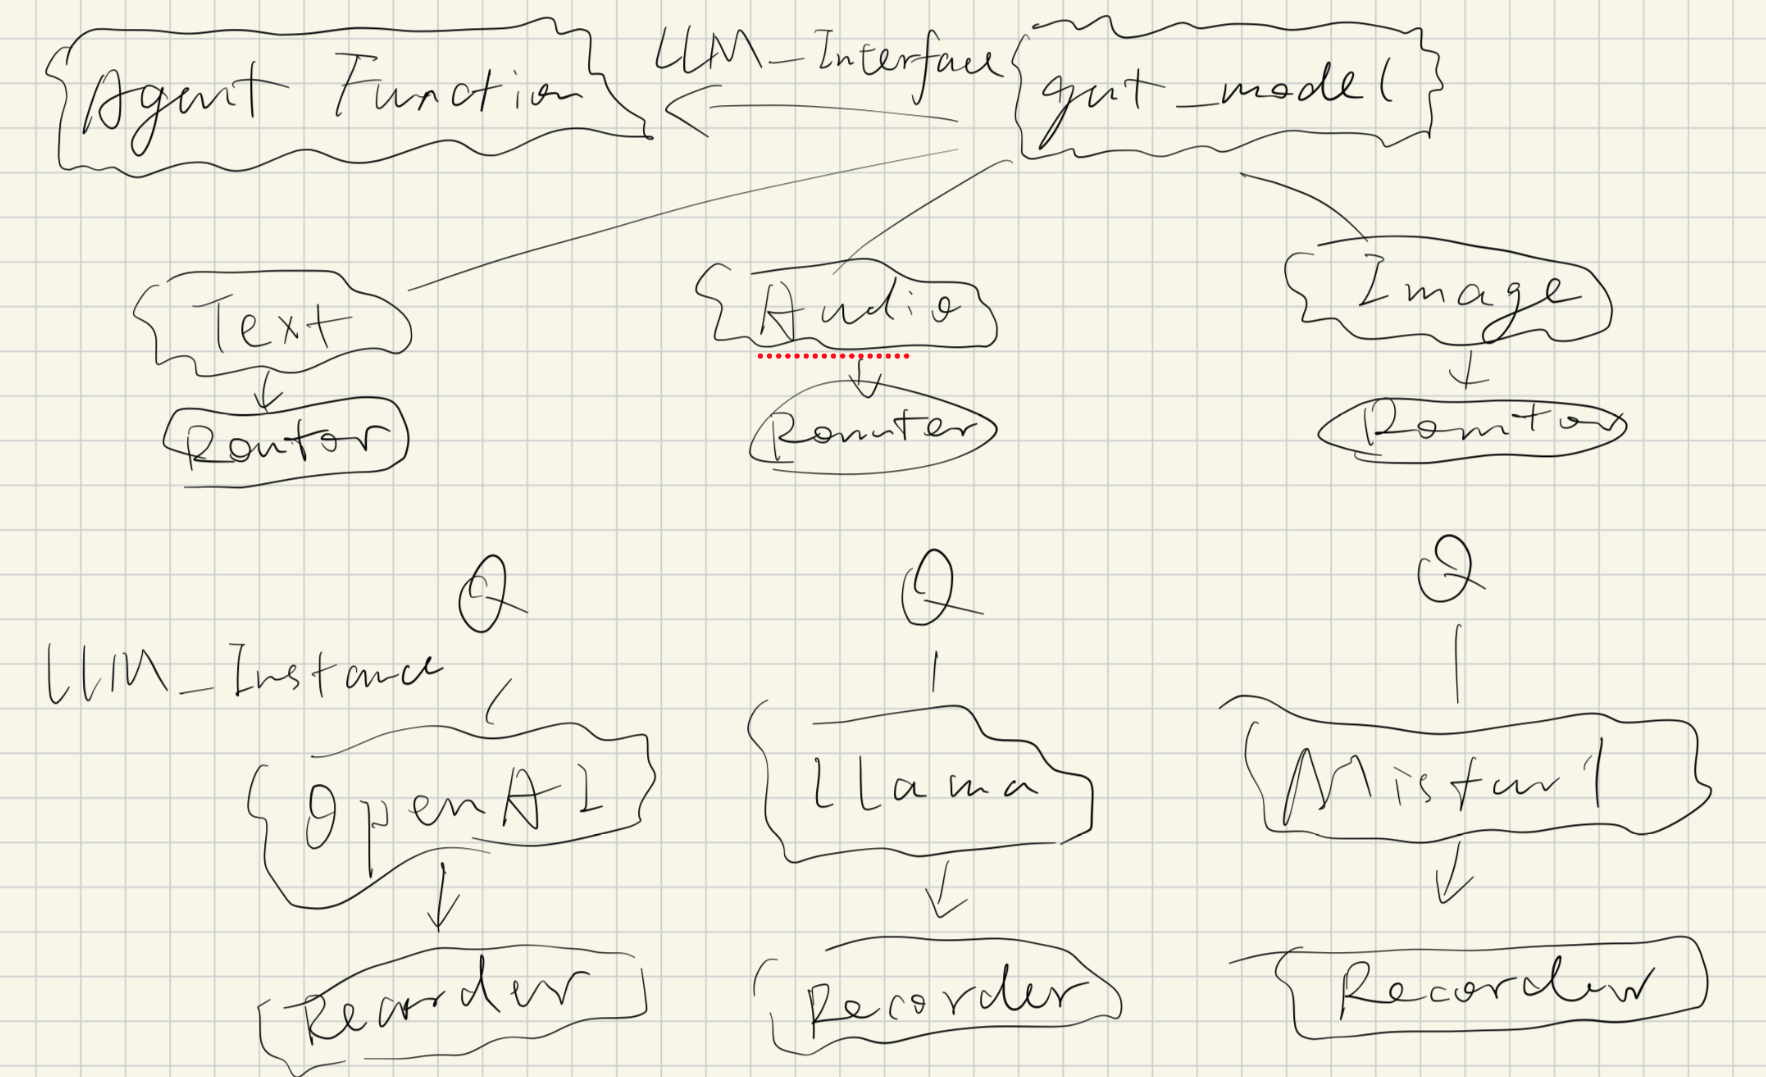 Agent Function
LLM_Interface
get_model
Text
Audio
Image
Router
Router
Router
Q
Q
Q
LLM_Instance
OpenAI
LLama
Mistarl
Recorder
Recorder
Recorder